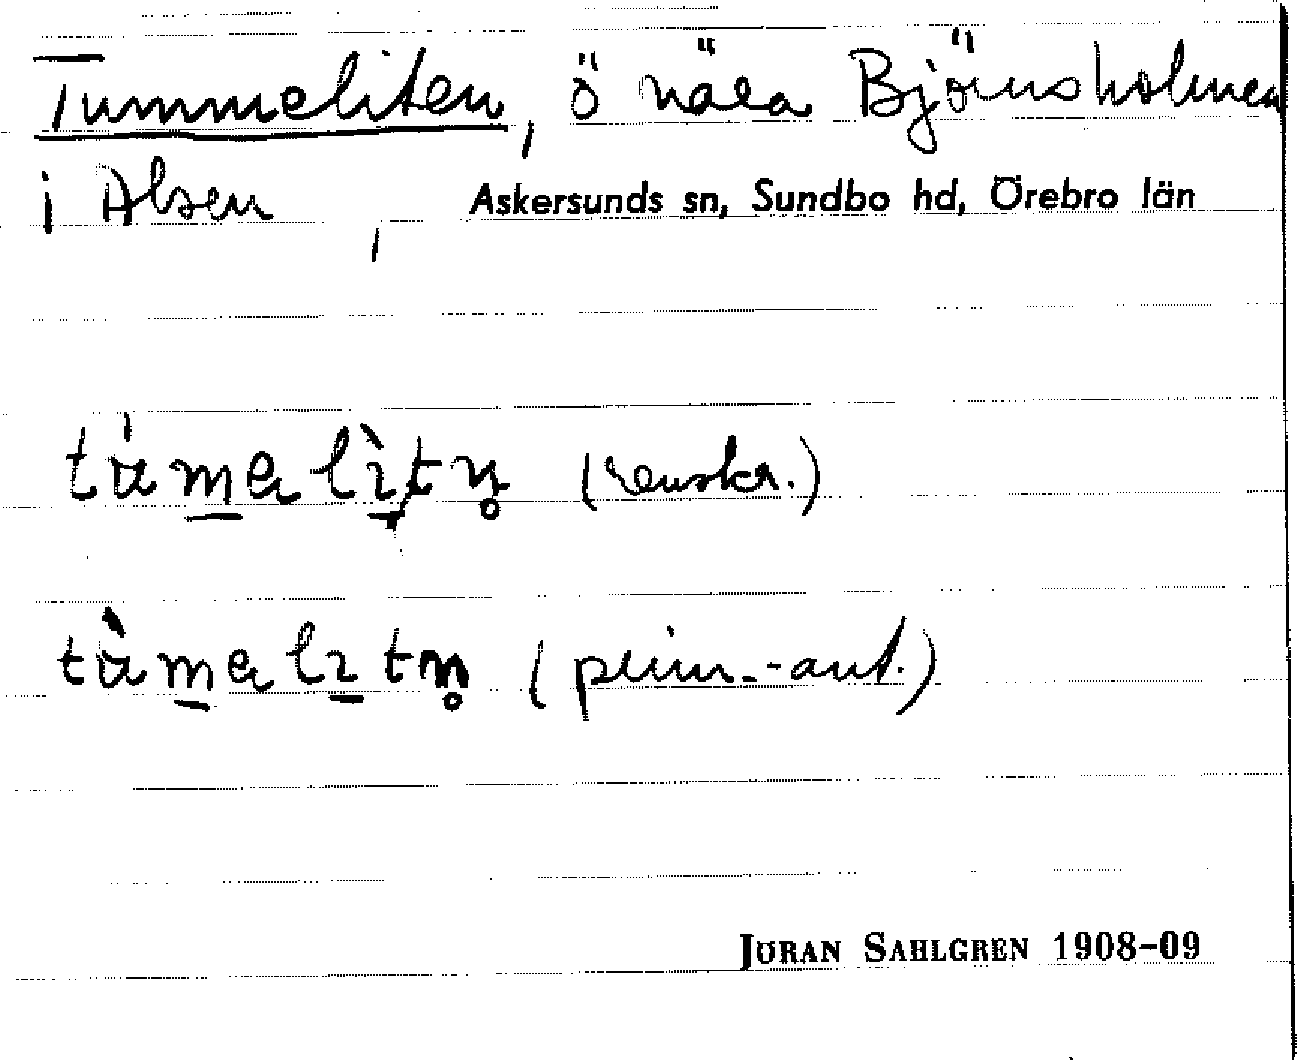 Tummeliten, ö nära Björnsholmen
i Alsen, Askersunds sn, Sundbo hd, Örebro län
tu̇̀məlìtn̥ (renskr.)
tu̇̀məlıtn̥ (prim.-ant.)
JÖRAN SAHLGREN 1908-09